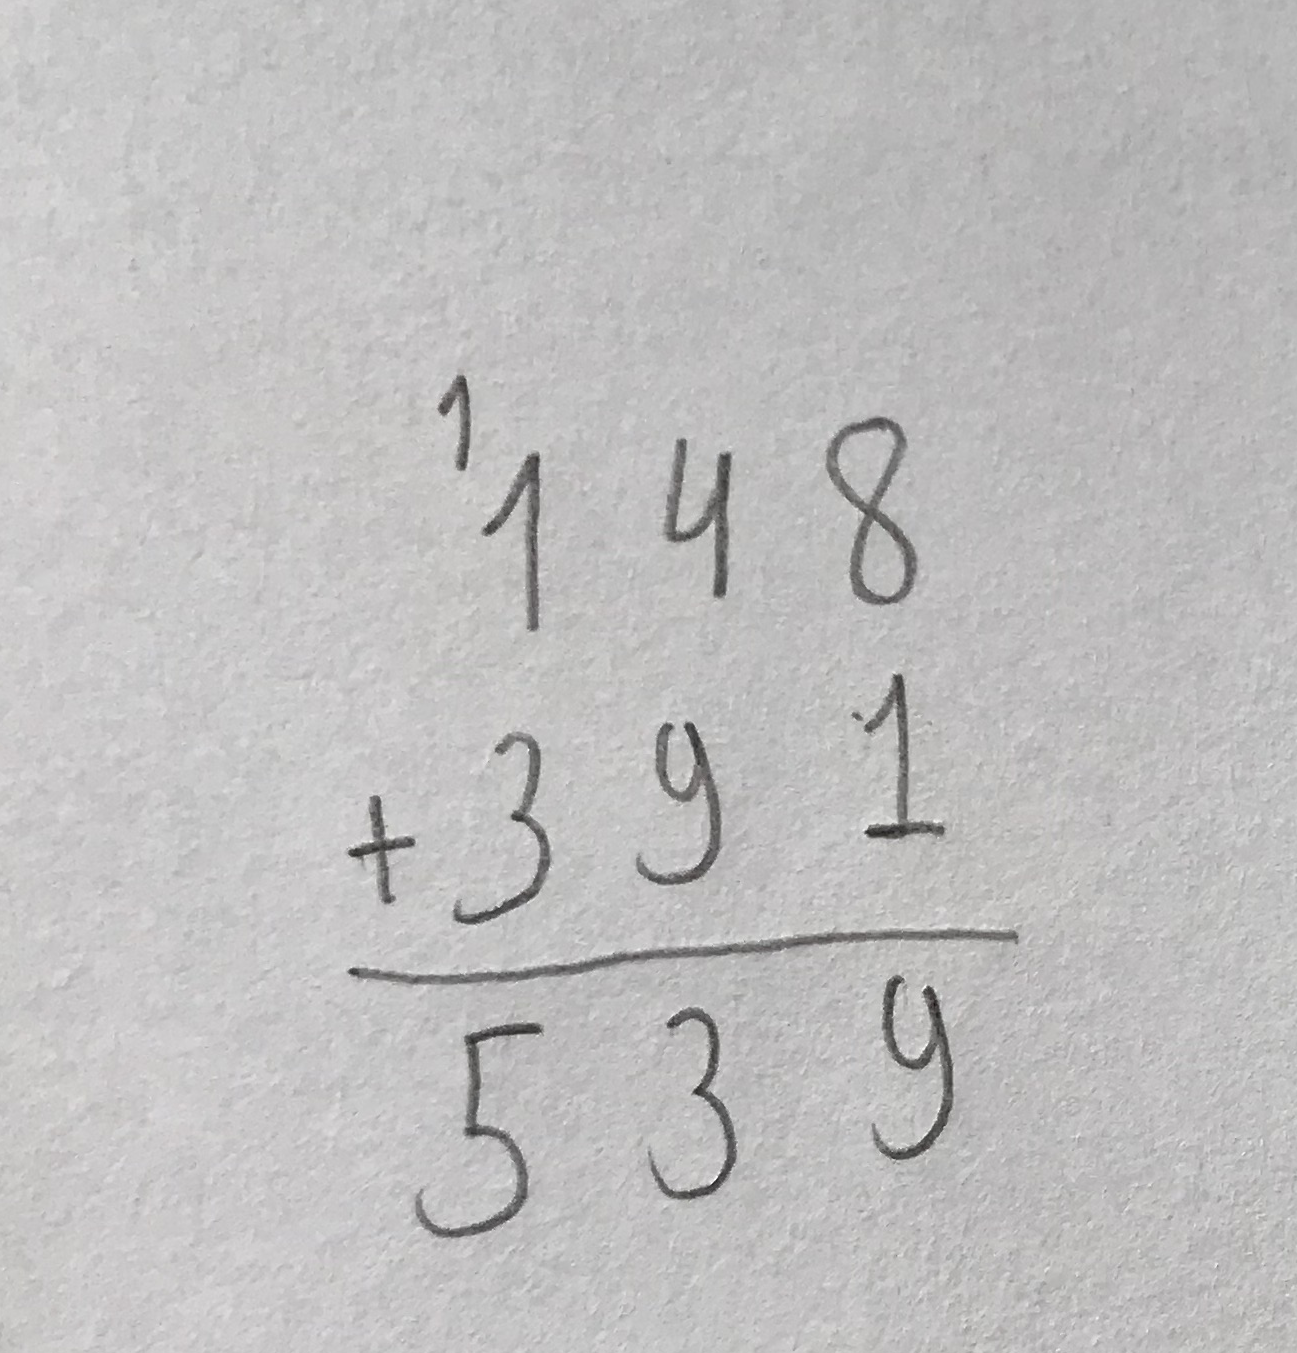 1
148
+391
539